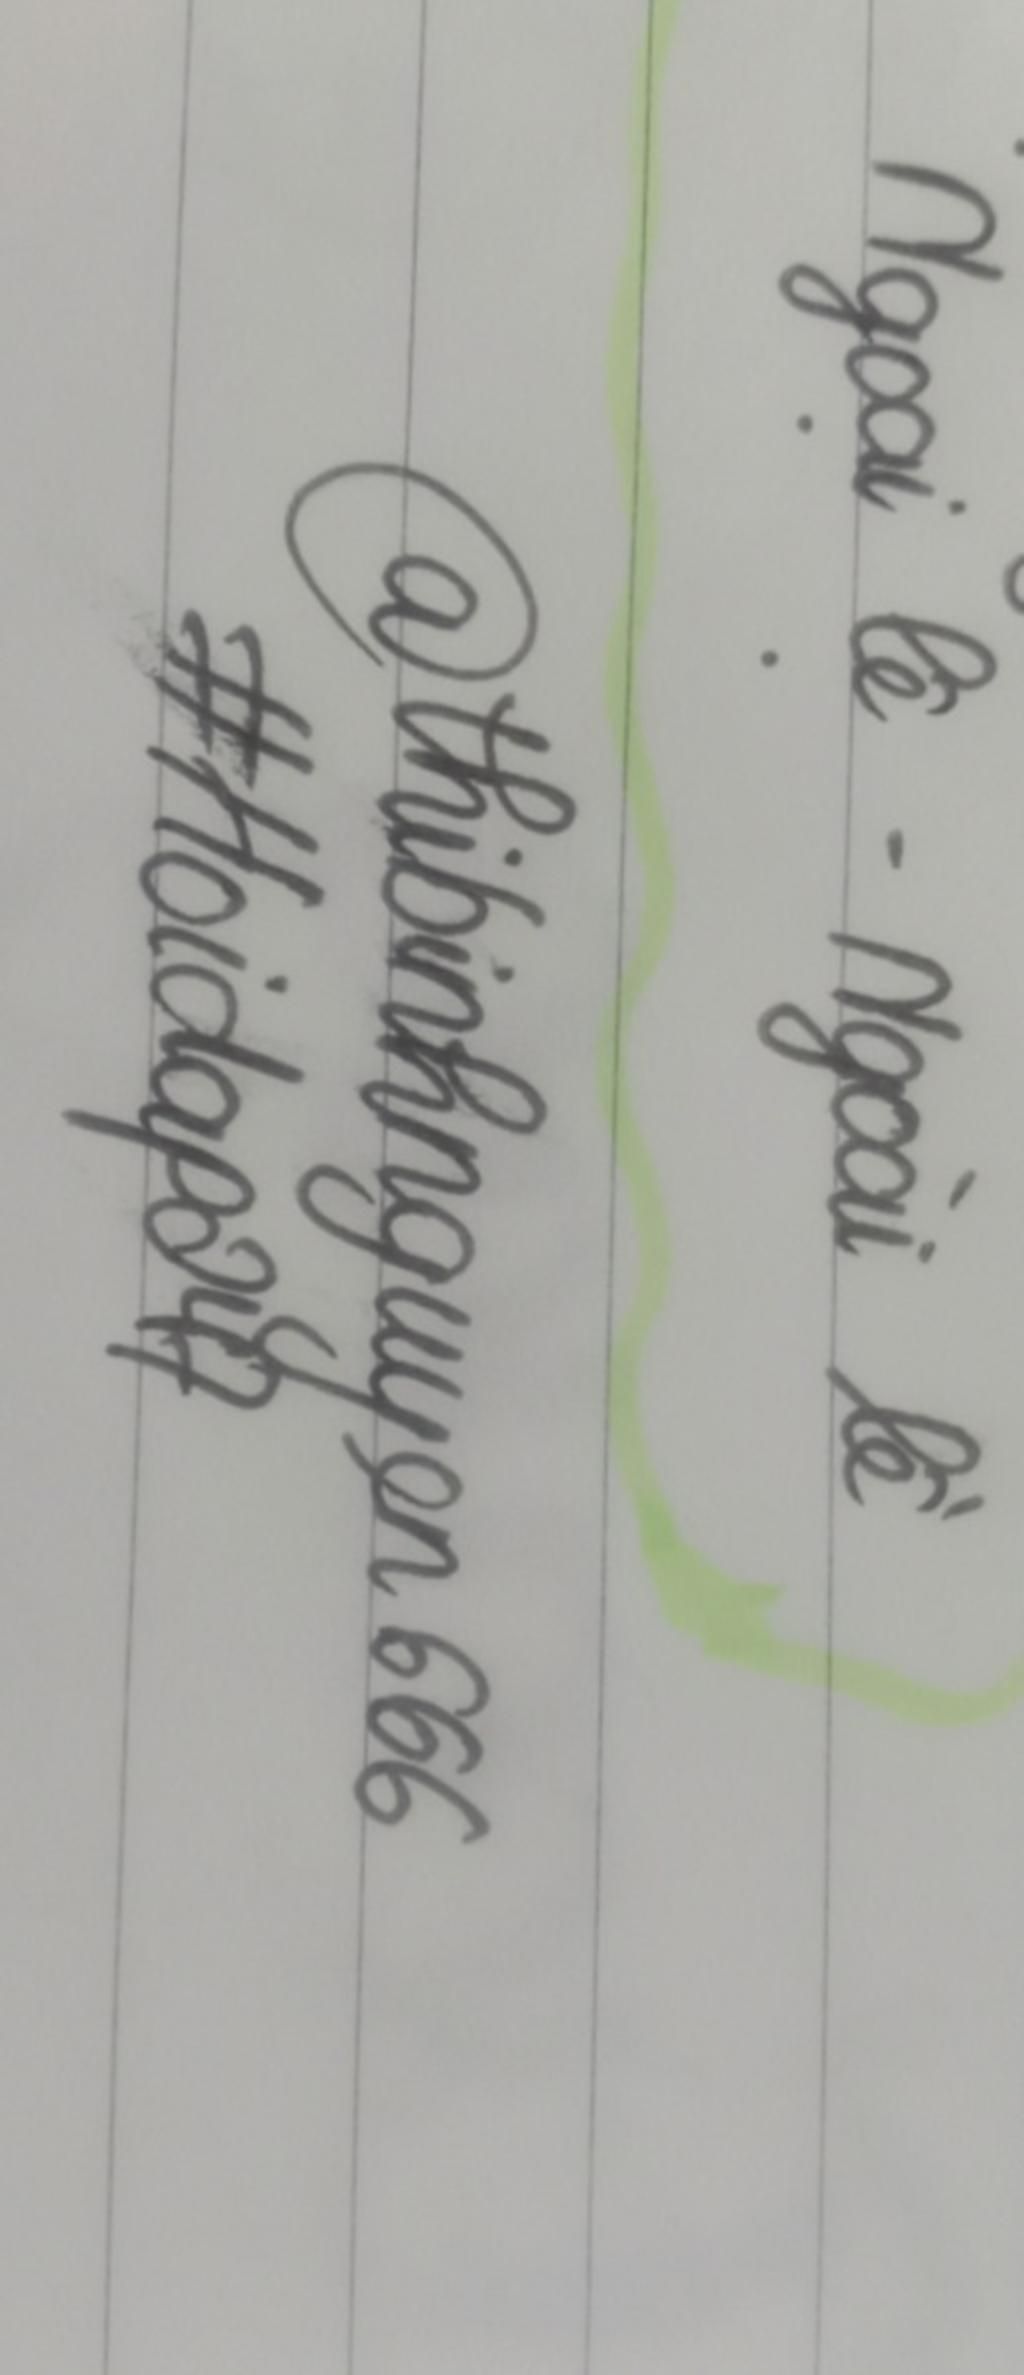 Ngoại lệ - Ngoài lề
@thibinhnguyen666
#Hoidap247